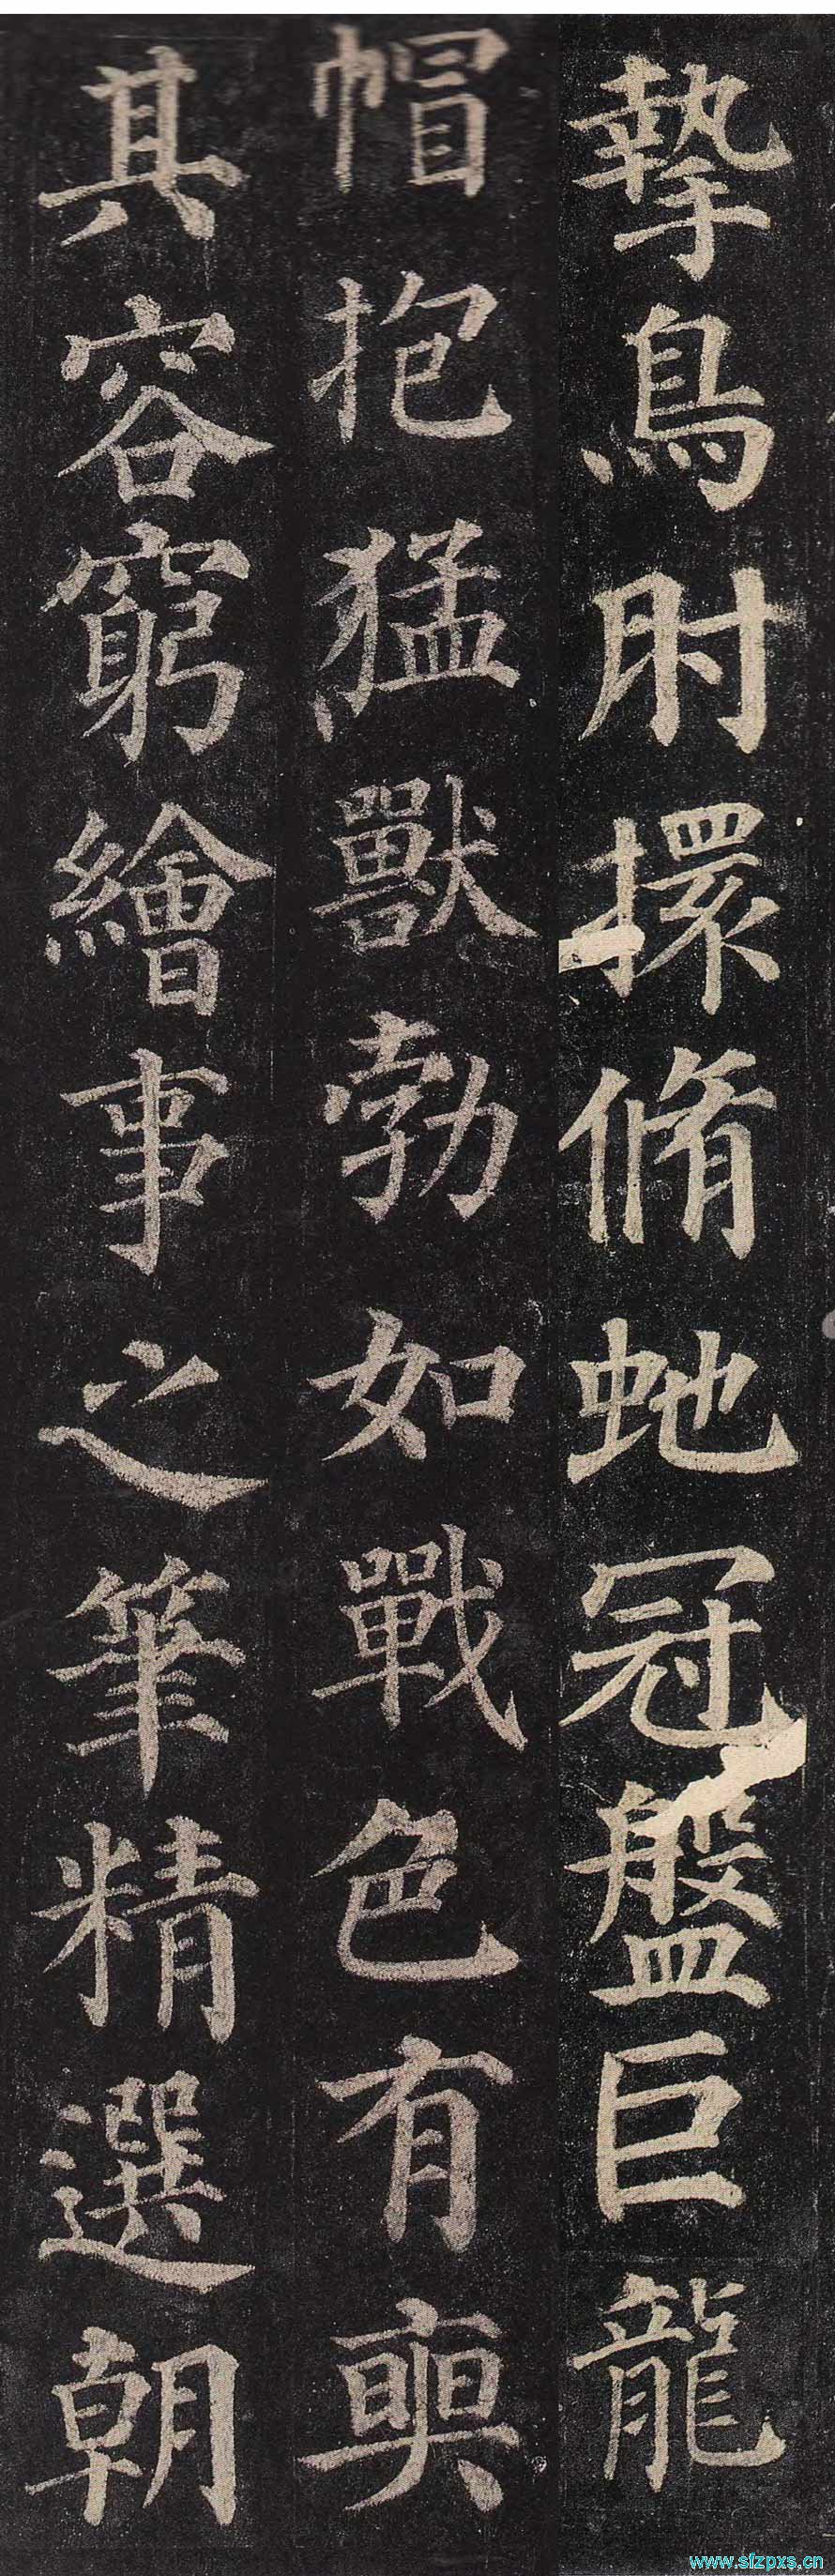 摯鳥肘擐脩虵冠盤巨龍
帽抱猛獸勃如戰色有奭
其容窮繪事之筆精選朝
www.sfzpxs.cn